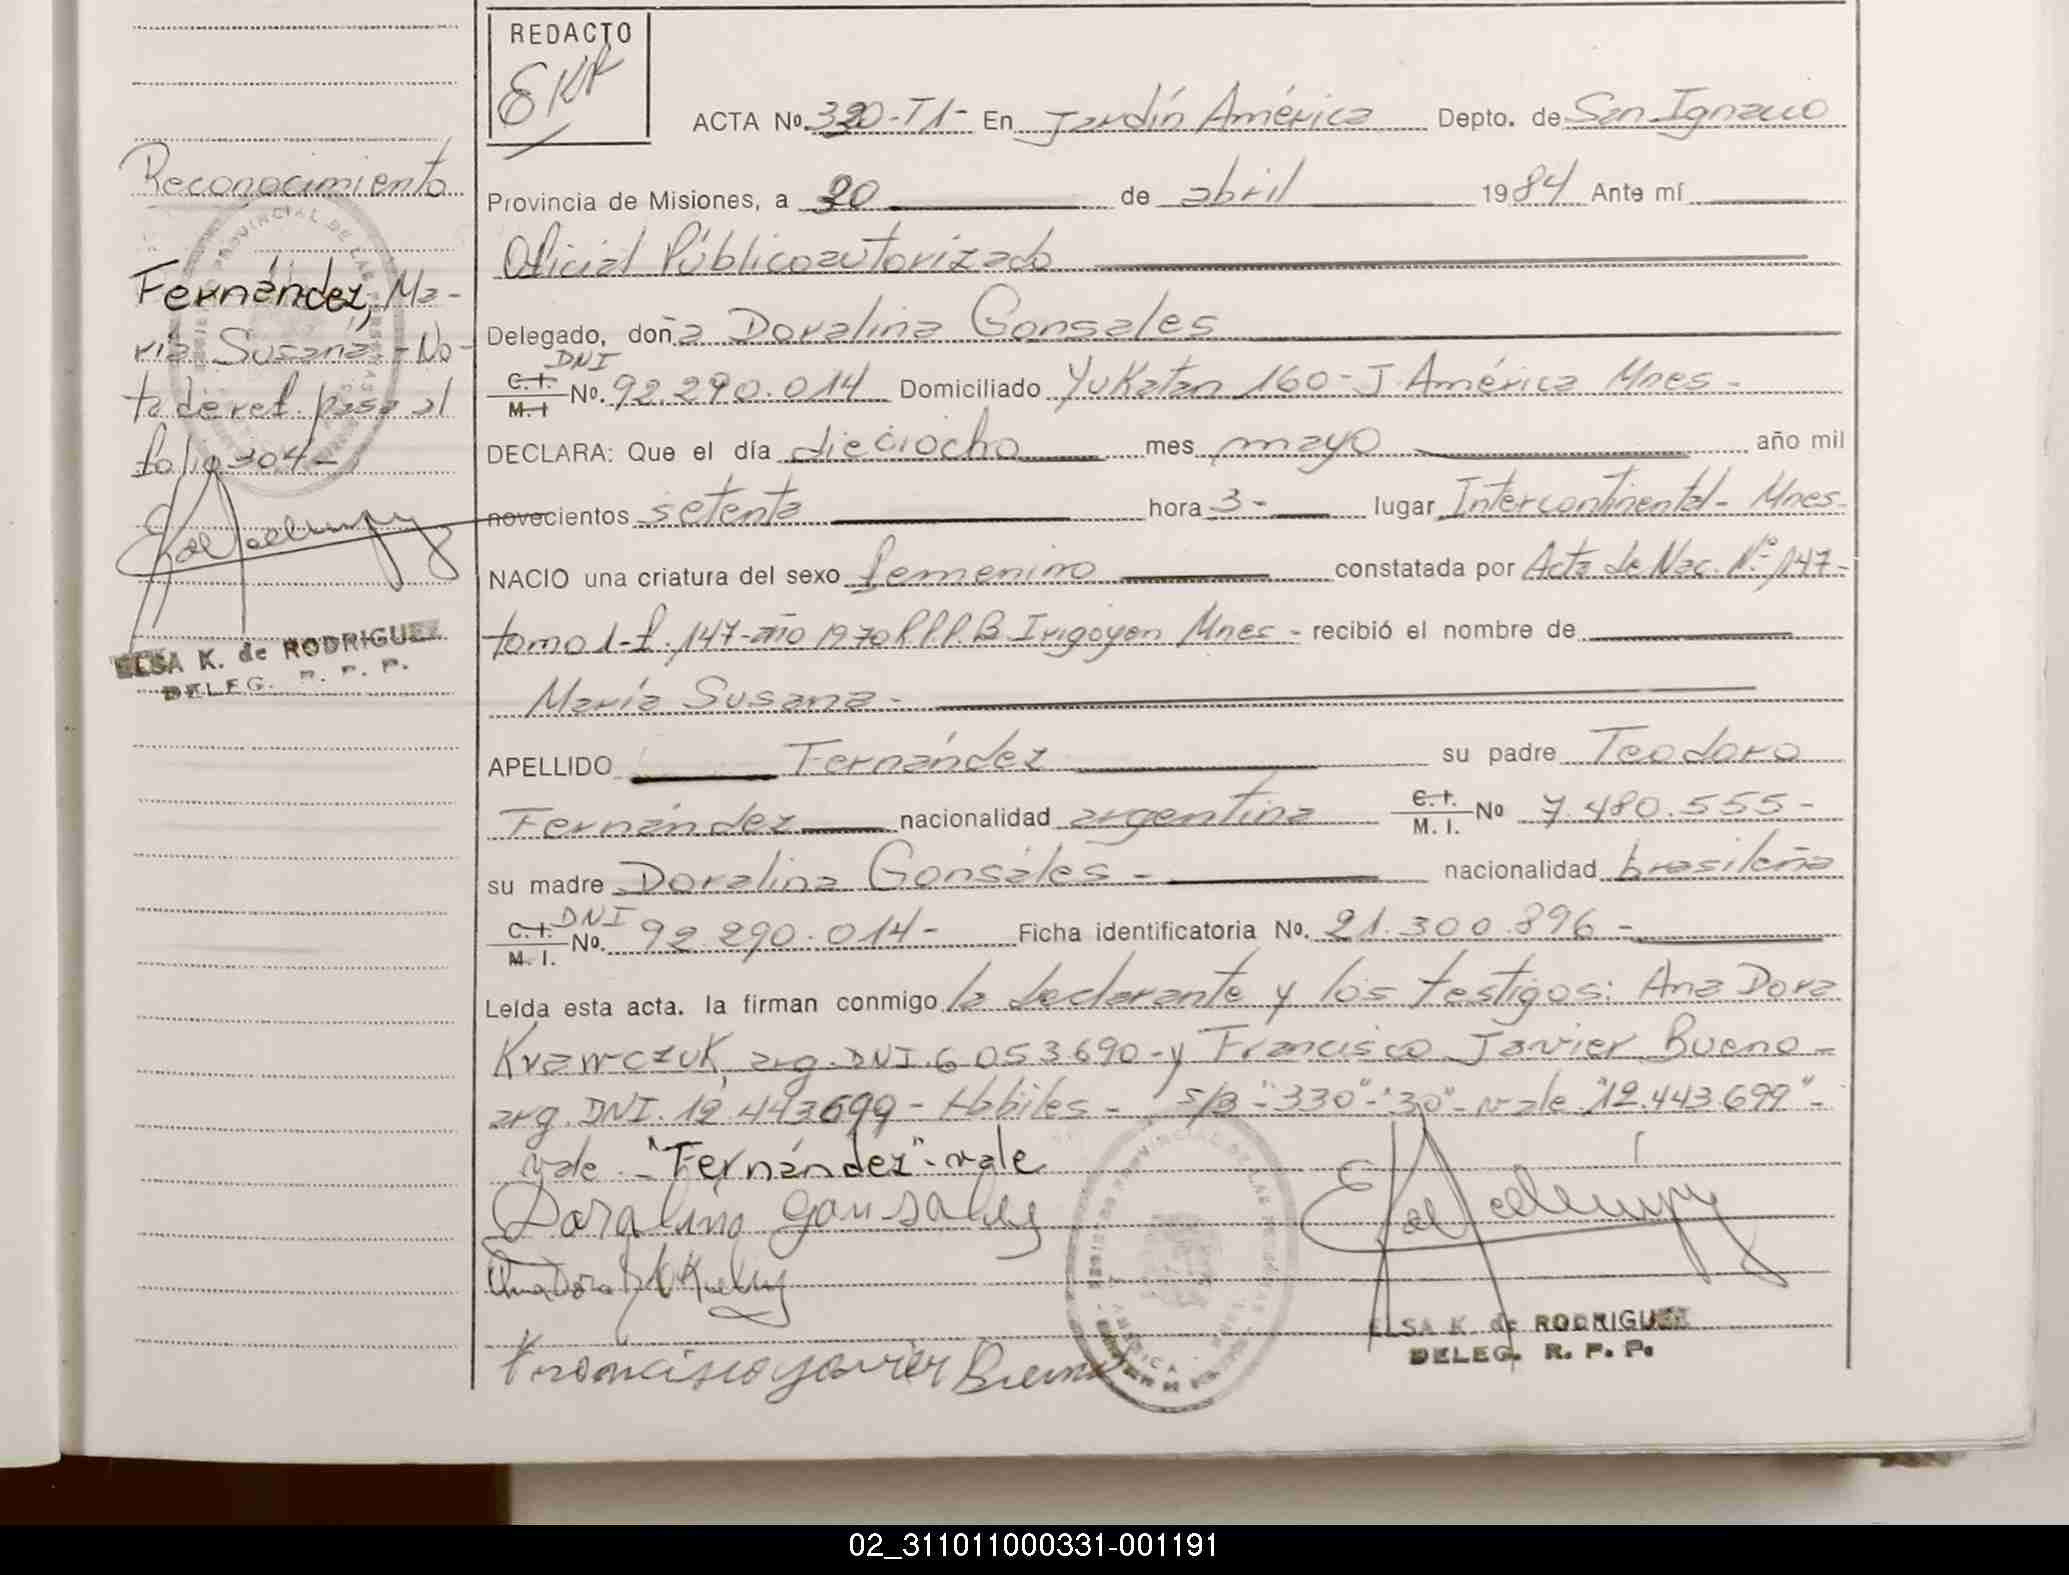 REDACTO
EKR
ACTA Nº 330-T1- En Jardín América Depto. de San Ignacio
Provincia de Misiones, a 30 de abril 1984 Ante mí
Oficial Público autorizado
Delegado, doña Doralina Gonsales
DNI
C.I. M.I Nº. 92.290.014 Domiciliado Yukatan 160-J. América Mnes-
DECLARA: Que el día dieciocho mes mayo año mil
novecientos setenta hora 3- lugar Intercontinental- Mnes-
NACIO una criatura del sexo femenino constatada por Acta de Nac. Nº 147-
tomo 1-f. 147-año 1970 R.P.P. B. Irigoyen Mnes- recibió el nombre de
María Susana-
APELLIDO Fernández su padre Teodoro
Fernández nacionalidad argentina C.I. M.I. Nº 7.480.555-
su madre Doralina Gonsáles- nacionalidad brasileña
DNI
C.I. M.I. Nº. 92 290.014- Ficha identificatoria No. 21.300.896-
Leída esta acta. la firman conmigo la declarante y los testigos: Ana Dora
Krawczuk, arg. DNI. 6 053.690-y Francisco Javier Bueno-
arg. DNI. 12.443699- Hábiles- s/B-"330"-"30"-vale "12.443.699"-
vale-"Fernández"-vale
Doralina gonsales
Ana Dora
Francisco Javier Bueno
ELSA K. de RODRIGUEZ
DELEG. R. P. P.
Reconocimiento
Fernández, Ma-
ría Susana.-No-
ta de ref. pasa al
folio 304-
ELSA K. de RODRIGUEZ
DELEG. R. P. P.
02_311011000331-001191